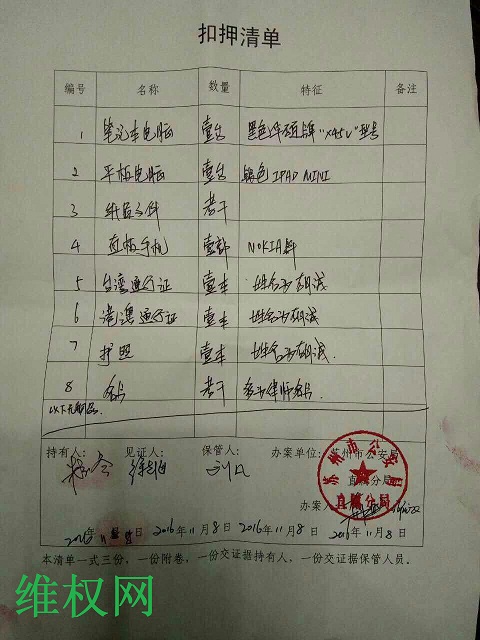 扣押清单
编号 名称 数量 特征 备注
1 笔记本电脑 壹台 黑色华硕牌"X45V"型号
2 平板电脑 壹台 银色IPAD MINI
3 纸质文件 若干
4 直板手机 壹部 NOKIA牌
5 台湾通行证 壹本 姓名为胡诚
6 港澳通行证 壹本 姓名为胡诚
7 护照 壹本 姓名为胡诚.
8 名片 若干 多为律师名片
以下无物品.
持有人: 见证人: 保管人: 办案单位: 苏州市公安局
直属分局
办案人
2016年11月8日 2016年11月8日 2016年11月8日 2016年11月8日
苏州市公安局
直属分局
本清单一式三份，一份附卷，一份交证据持有人，一份交证据保管人员.
维权网